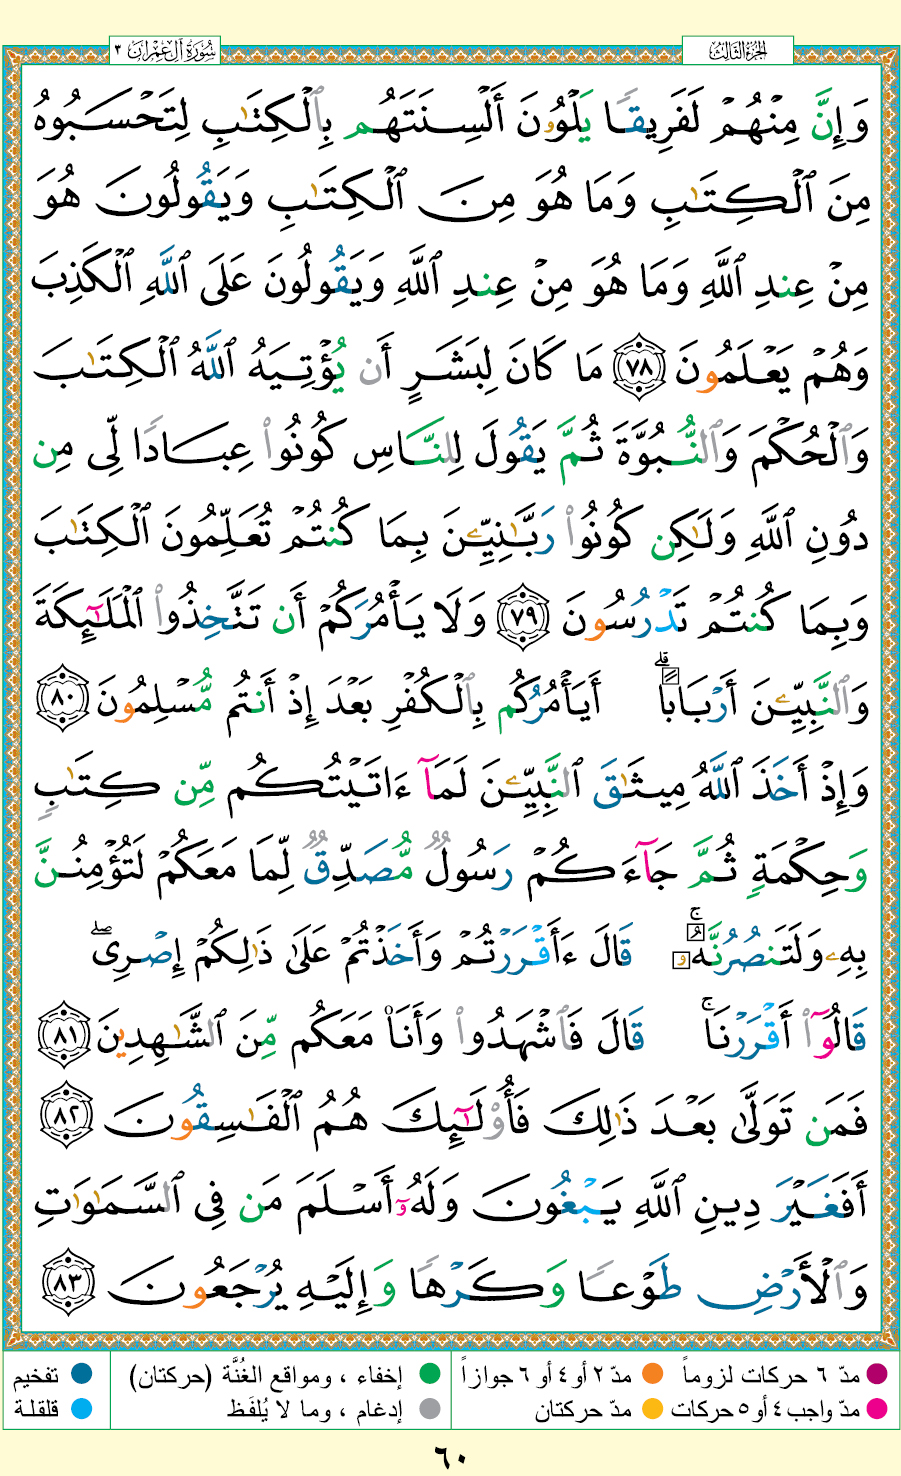 سُورَةُ آلِ عِمْرَانَ ٣
الجُزءُ الثَّالِث
وَإِنَّ مِنْهُمْ لَفَرِيقًا يَلْوُۥنَ أَلْسِنَتَهُم بِٱلْكِتَٰبِ لِتَحْسَبُوهُ
مِنَ ٱلْكِتَٰبِ وَمَا هُوَ مِنَ ٱلْكِتَٰبِ وَيَقُولُونَ هُوَ
مِنْ عِندِ ٱللَّهِ وَمَا هُوَ مِنْ عِندِ ٱللَّهِ وَيَقُولُونَ عَلَى ٱللَّهِ ٱلْكَذِبَ
وَهُمْ يَعْلَمُونَ ﴿٧٨﴾ مَا كَانَ لِبَشَرٍ أَن يُؤْتِيَهُ ٱللَّهُ ٱلْكِتَٰبَ
وَٱلْحُكْمَ وَٱلنُّبُوَّةَ ثُمَّ يَقُولَ لِلنَّاسِ كُونُوا۟ عِبَادًا لِّى مِن
دُونِ ٱللَّهِ وَلَٰكِن كُونُوا۟ رَبَّٰنِيِّۦنَ بِمَا كُنتُمْ تُعَلِّمُونَ ٱلْكِتَٰبَ
وَبِمَا كُنتُمْ تَدْرُسُونَ ﴿٧٩﴾ وَلَا يَأْمُرَكُمْ أَن تَتَّخِذُوا۟ ٱلْمَلَٰٓئِكَةَ
وَٱلنَّبِيِّۦنَ أَرْبَابًا ۗ أَيَأْمُرُكُم بِٱلْكُفْرِ بَعْدَ إِذْ أَنتُم مُّسْلِمُونَ ﴿٨٠﴾
وَإِذْ أَخَذَ ٱللَّهُ مِيثَٰقَ ٱلنَّبِيِّۦنَ لَمَآ ءَاتَيْتُكُم مِّن كِتَٰبٍ
وَحِكْمَةٍ ثُمَّ جَآءَكُمْ رَسُولٌ مُّصَدِّقٌ لِّمَا مَعَكُمْ لَتُؤْمِنُنَّ
بِهِۦ وَلَتَنصُرُنَّهُۥ ۚ قَالَ ءَأَقْرَرْتُمْ وَأَخَذْتُمْ عَلَىٰ ذَٰلِكُمْ إِصْرِى ۖ
قَالُوٓا۟ أَقْرَرْنَا ۚ قَالَ فَٱشْهَدُوا۟ وَأَنَا۠ مَعَكُم مِّنَ ٱلشَّٰهِدِينَ ﴿٨١﴾
فَمَن تَوَلَّىٰ بَعْدَ ذَٰلِكَ فَأُو۟لَٰٓئِكَ هُمُ ٱلْفَٰسِقُونَ ﴿٨٢﴾
أَفَغَيْرَ دِينِ ٱللَّهِ يَبْغُونَ وَلَهُۥٓ أَسْلَمَ مَن فِى ٱلسَّمَٰوَٰتِ
وَٱلْأَرْضِ طَوْعًا وَكَرْهًا وَإِلَيْهِ يُرْجَعُونَ ﴿٨٣﴾
مدّ ٦ حركات لزوماً مدّ ٢ أو ٤ أو ٦ جوازاً إخفاء ، ومواقع الغُنَّة (حركتان) تفخيم
مدّ واجب ٤ أو ٥ حركات مدّ حركتان إدغام ، وما لا يُلفَظ قلقلة
٦٠